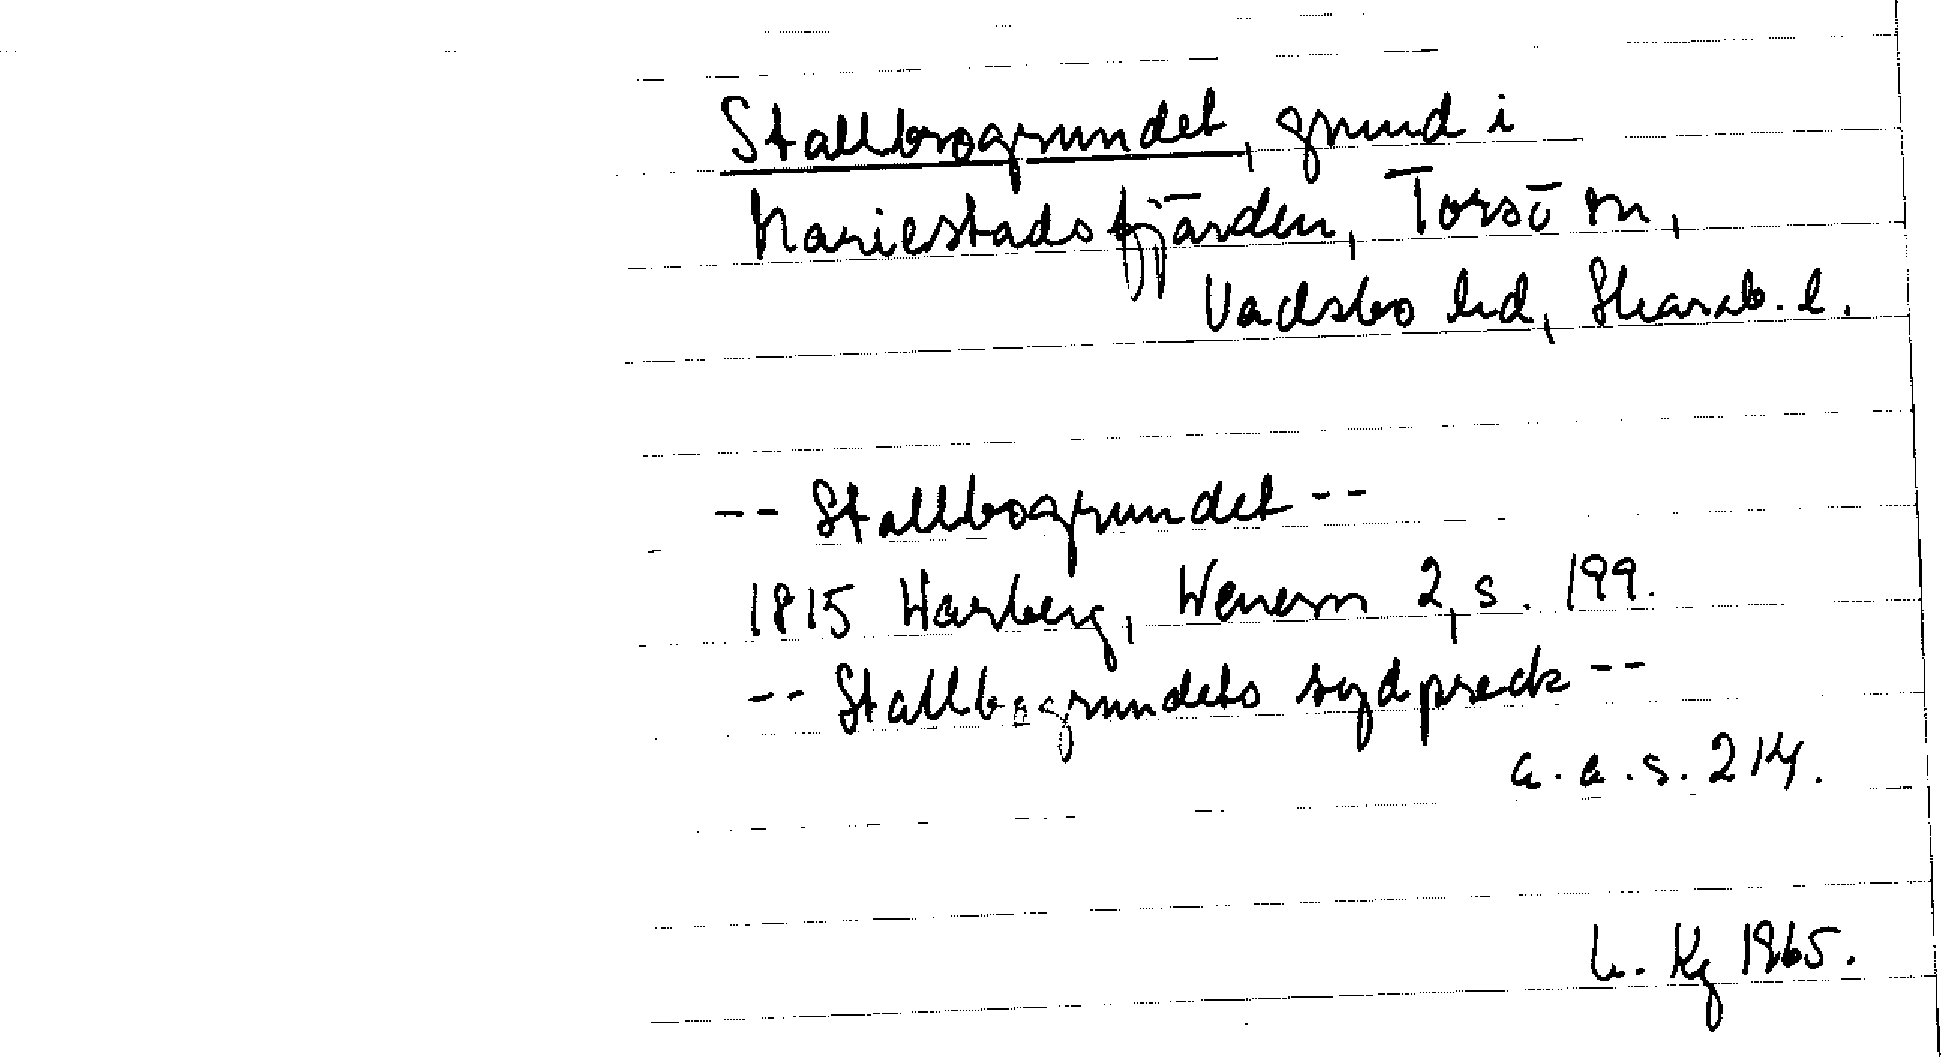 Stallbrogrundet, grund i
Mariestadsfjärden, Torsö sn,
Vadsbo hd, Skarab. l.
-- Stallbogrundet --
1815 Warberg, Wenern 2, s. 199.
-- Stallbogrundets sydpreck --
a. a. s. 214.
L. Kg 1965.